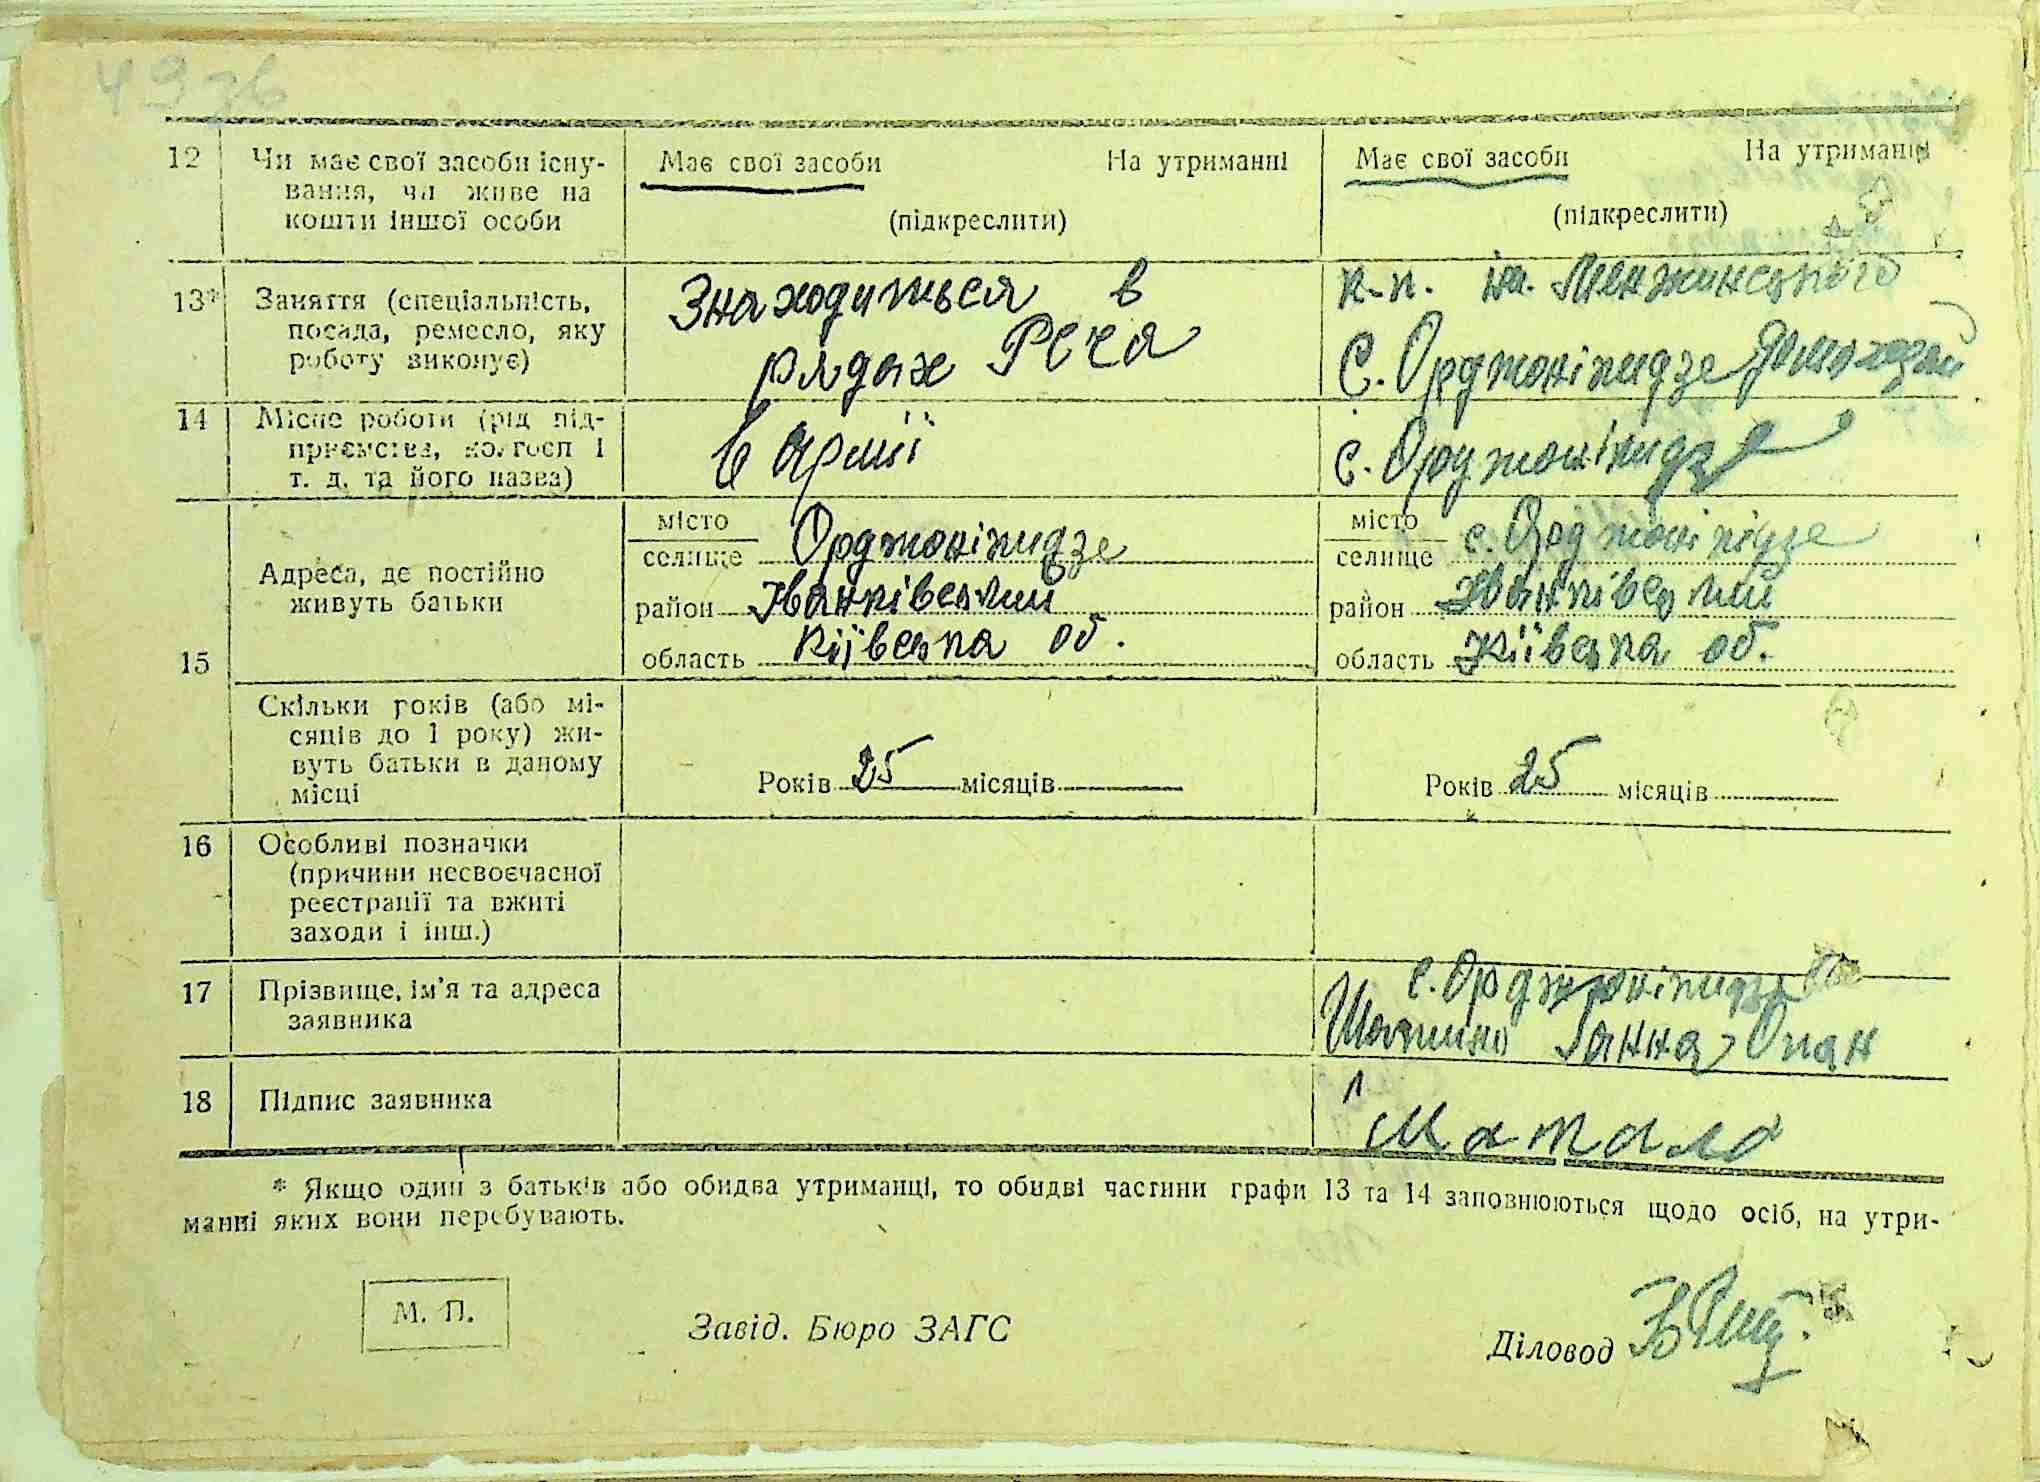 49зв
12 Чи має свої засоби існу-
вання, чи живе на
кошти іншої особи
Має свої засоби На утриманні
(підкреслити)
Має свої засоби На утриманні
(підкреслити)
13* Заняття (спеціальність,
посада, ремесло, яку
роботу виконує)
Знаходиться в
рядах РСЧА
к.п. ім. Менжинського
с. Орджонікидзе
14 Місце роботи (рід під-
приємства, колгосп і
т. д. та його назва)
в Армії
с. Орджонікидзе
15 Адреса, де постійно
живуть батьки
місто
селище Орджонікидзе
район Іванківський
область Київська об.
місто
селище с. Орджонікідзе
район Іванківський
область Київська об.
Скільки років (або мі-
сяців до 1 року) жи-
вуть батьки в даному
місці
Років 25 місяців
Років 25 місяців
16 Особливі позначки
(причини несвоєчасної
реєстрації та вжиті
заходи і інш.)
17 Прізвище, ім'я та адреса
заявника
с. Орджонікидзе
Ганна
18 Підпис заявника
* Якщо один з батьків або обидва утриманці, то обидві частини графи 13 та 14 заповнюються щодо осіб, на утри-
манні яких вони перебувають.
М. П.
Завід. Бюро ЗАГС
Діловод